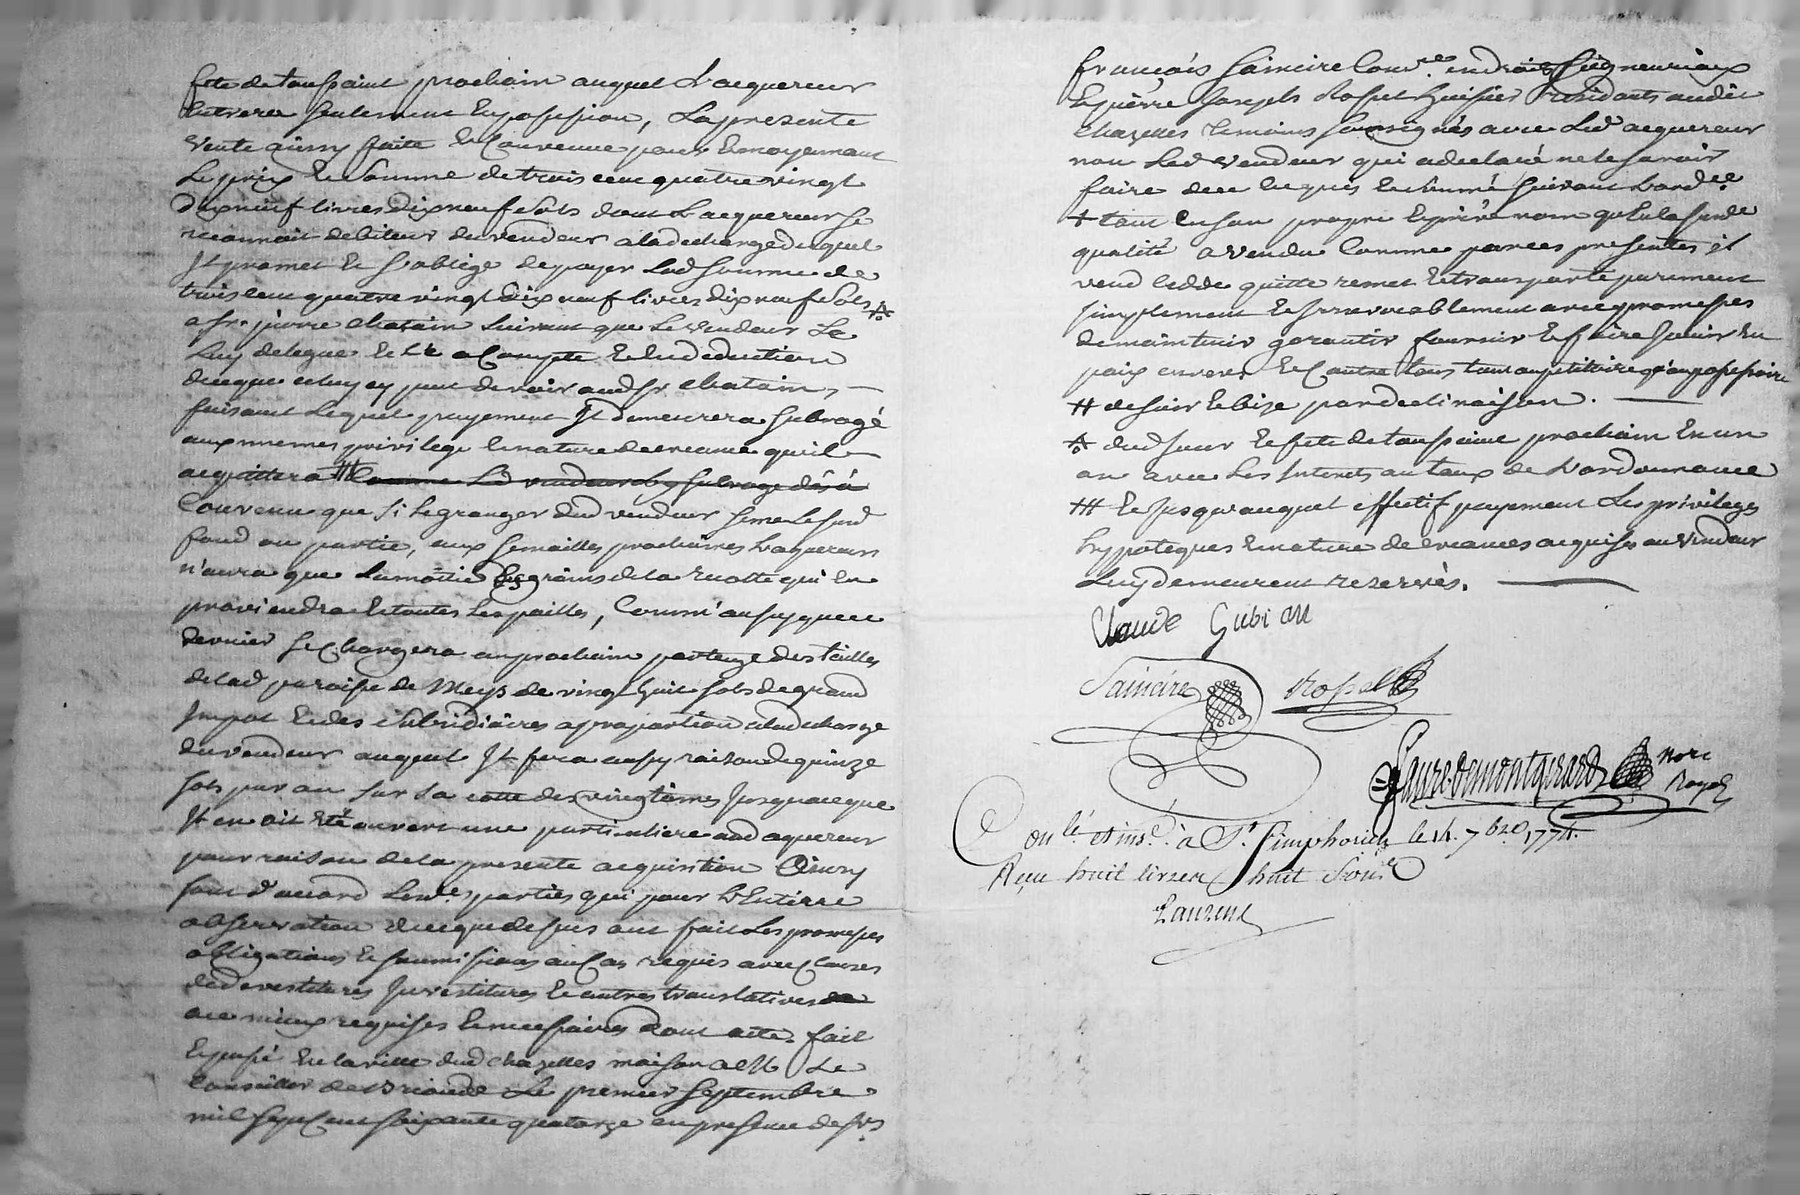 fete de toussaint prochain auquel L'acquereur
Entrera seulement En possession, La presente
Vente ainsy faite Et Convenue pour Et moyennant
Le prix Et Somme de trois cent quatre vingt
dix neuf livres dix neuf sols dont L'acquereur se
reconnoit debiteur du vendeur a la decharge duquel
Il promet Et s'oblige de payer Lad somme de
trois cent quatre vingt dix neuf livres dix neuf sols
a sr. pierre chatain suivant que Le vendeur Le
Luy delegue Et Ce a Compte Et En deduction
de ce que celuy cy peut devoir aud sr chatain,
faisant Lequel payement Il demeurera subrogé
aux memes privilege Et nature de creance qu'il
acquittera ⧻ Comme Led vendeur
Convenu que si Le granger dud vendeur seme Le susd
fond ou partie, aux semailles prochaines L'aquereur
n'aura que La moitié Des grains de la recolte qui En
proviendra Et toutes Les pailles, Comm'aussy que ce
dernier se Chargera au prochain partage des tailles
de lad paroisse de Meys de vingt huit sols de grand
Impot Et des subsidiaires a proportion a la decharge
du vendeur auquel Il fera aussy raison de quinze
sols par an sur sa cotte des vingtiemes Jusqu'a ce que
Il en ait été ouvert une particuliere aud aquereur
pour raison de la presente acquisition Ainsy
sont d'accord Lesd.es parties qui pour L'Entiere
observation de ce que dessus ont fait Les promesses
obligations Et soumissions au Cas requis avec Clauses
de devestitures Investitures Et autres translatives
au mieux requises Et necessaires dont acte. fait
Et passé En la ville dud chazelles maison a M Le
Conseiller de Brioude Le premier Septembre
mil sept cent soixante quatorze en presence de srs
françois Saincire Com.re en droits Seigneuriaux
Et pierre Joseph Rossel huissier residants audit
chazelles temoins soussignés avec Led acquereur
non Led vendeur qui a declaré ne le savoir
faire de ce Enquis Et sommé suivant L'ord.ce
+ tant En son propre Et privé nom qu'En la susd.e
qualité a vendu Comme par ces presentes Il
vend cedde quitte remet Et transporte purement
simplement Et Irrevocablement avec promesses
de maintenir garantir fournir Et faire Jouir En
paix envers Et Contre tous tant au petitoire qu'au possessoire
# de soir Et bize par declinaison.
dud Jour Et fete de toussaint prochain En un
an avec Les Interets au taux de L'ordonnance
⧻ Et Jusqu'auquel effectif payement Les privileges
hypoteques Et nature de creances acquises au Vendeur
Luy demeurent reservés.
Claude Gubian
Saincire Rossel
Faure de montgirard Nore
Royal
Con.lé et ins.é à S.t Simphorien le 14. 7bre. 1774.
Reçu huit livres huit sous
Laurent